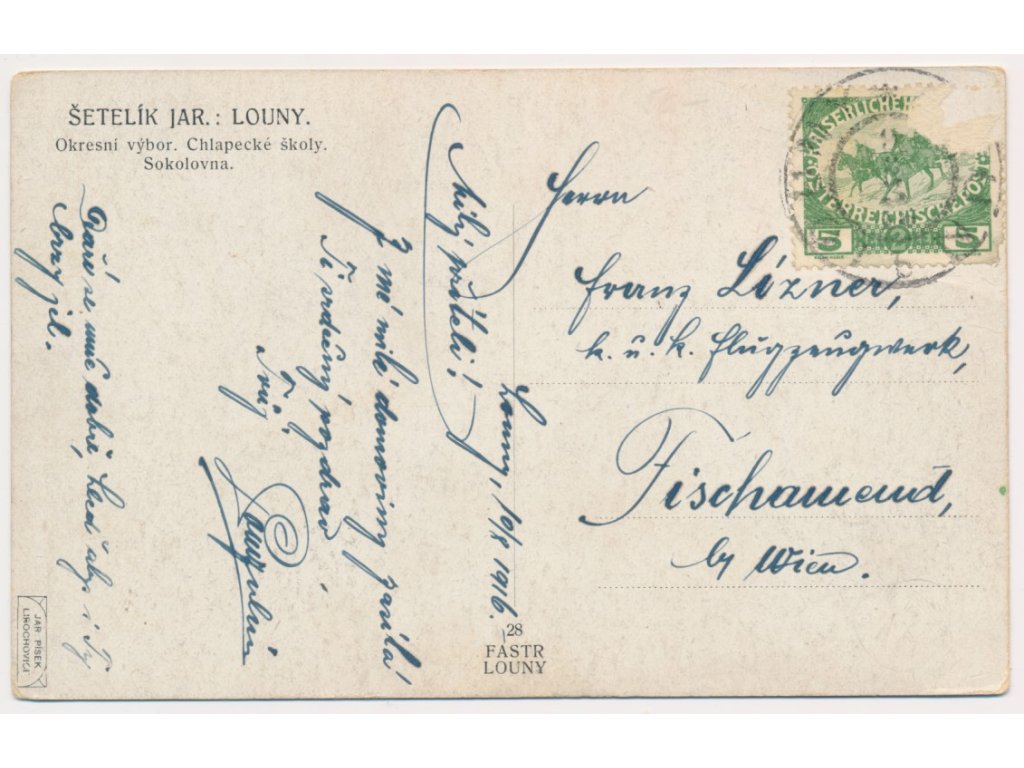 ŠETELÍK JAR.: LOUNY.
Okresní výbor. Chlapecké školy.
Sokolovna.
Milý příteli!
Z mé milé domoviny zasílá
Ti srdečný pozdrav
Tvůj
Louny, 10/8 1916.
Daří se mně dobře, hleď abys i Ty
brzy jel.
Herrn
Franz Lízner,
k. u. k. Flugzeugwerk,
Fischamend,
by Wien.
KAISERLICHE
ÖSTERREICHISCHE POST
5 5
28
FASTR
LOUNY
JAR PÍSEK
LIBOCHOVICE